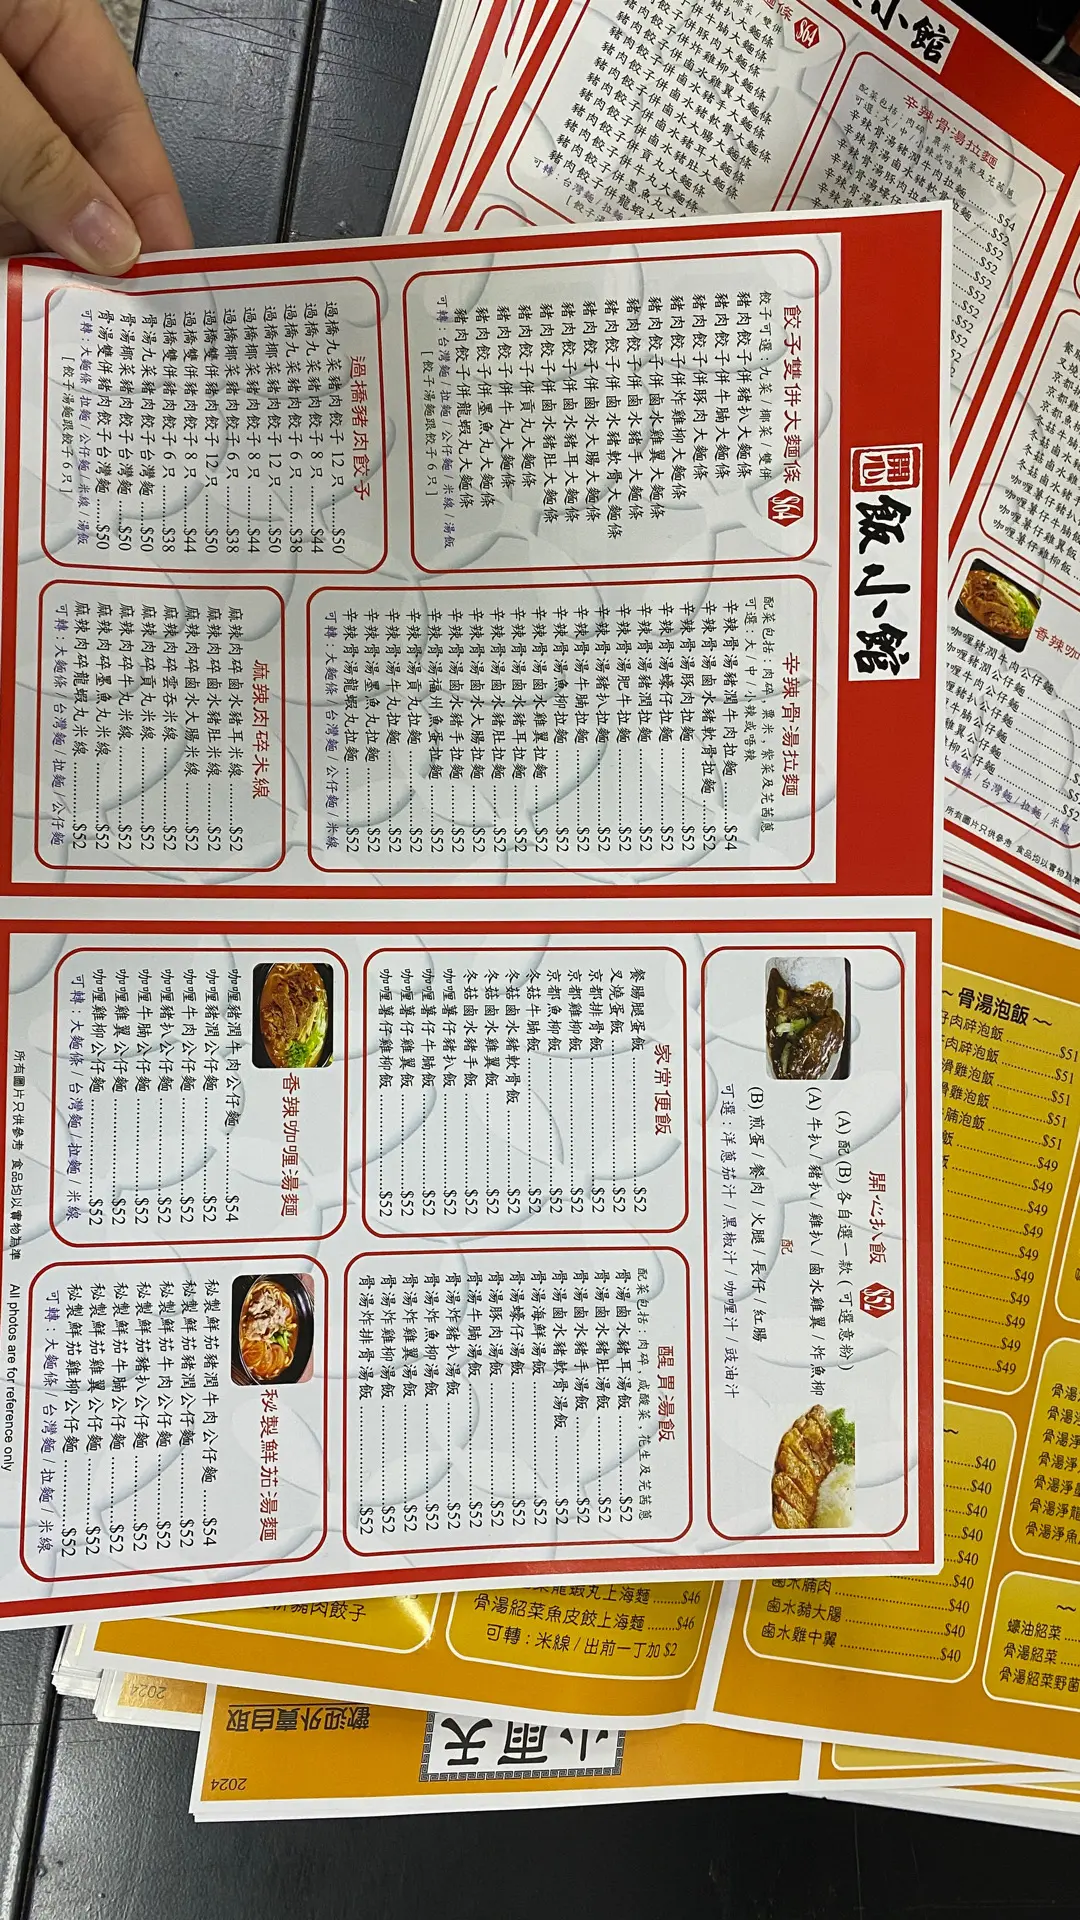 開心
飯小館
餃子雙併大麵條 $64
餃子可選：九菜 / 椰菜 / 雙併
豬肉餃子併豬扒大麵條
豬肉餃子併牛腩大麵條
豬肉餃子併豚肉大麵條
豬肉餃子併炸雞柳大麵條
豬肉餃子併鹵水雞翼大麵條
豬肉餃子併鹵水豬手大麵條
豬肉餃子併鹵水豬軟骨大麵條
豬肉餃子併鹵水大腸大麵條
豬肉餃子併鹵水豬耳大麵條
豬肉餃子併鹵水豬肚大麵條
豬肉餃子併貢丸大麵條
豬肉餃子併牛丸大麵條
豬肉餃子併墨魚丸大麵條
豬肉餃子併龍蝦丸大麵條
可轉：台灣麵 / 拉麵 / 公仔麵 / 米線 / 湯飯
[ 餃子湯麵跟餃子 6 只 ]
過橋豬肉餃子
過橋九菜豬肉餃子 12 只 ......$50
過橋九菜豬肉餃子 8 只 ......$44
過橋九菜豬肉餃子 6 只 ......$38
過橋椰菜豬肉餃子 12 只 ......$50
過橋椰菜豬肉餃子 8 只 ......$44
過橋椰菜豬肉餃子 6 只 ......$38
過橋雙併豬肉餃子 12 只 ......$50
過橋雙併豬肉餃子 8 只 ......$44
過橋雙併豬肉餃子 6 只 ......$38
骨湯九菜豬肉餃子台灣麵 ......$50
骨湯椰菜豬肉餃子台灣麵 ......$50
骨湯雙併豬肉餃子台灣麵 ......$50
可轉：大麵條 / 拉麵 / 公仔麵 / 米線 / 湯飯
[ 餃子湯麵跟餃子 6 只 ]
辛辣骨湯拉麵
配菜包括：肉碎, 粟米, 紫菜及芫茜蔥
可選：大 / 中 / 小辣或唔辣
辛辣骨湯豬潤牛肉拉麵 ......$54
辛辣骨湯鹵水豬軟骨拉麵 ......$52
辛辣骨湯豚肉拉麵 ......$52
辛辣骨湯蠔仔拉麵 ......$52
辛辣骨湯豬潤拉麵 ......$52
辛辣骨湯肥牛拉麵 ......$52
辛辣骨湯豬扒拉麵 ......$52
辛辣骨湯牛腩拉麵 ......$52
辛辣骨湯魚柳拉麵 ......$52
辛辣骨湯鹵水雞翼拉麵 ......$52
辛辣骨湯鹵水豬耳拉麵 ......$52
辛辣骨湯鹵水豬肚拉麵 ......$52
辛辣骨湯鹵水大腸拉麵 ......$52
辛辣骨湯鹵水豬手拉麵 ......$52
辛辣骨湯福州魚蛋拉麵 ......$52
辛辣骨湯貢丸拉麵 ......$52
辛辣骨湯牛丸拉麵 ......$52
辛辣骨湯墨魚丸拉麵 ......$52
辛辣骨湯龍蝦丸拉麵 ......$52
可轉：大麵條 / 台灣麵 / 公仔麵 / 米線
麻辣肉碎米線
麻辣肉碎鹵水豬耳米線 ......$52
麻辣肉碎鹵水豬肚米線 ......$52
麻辣肉碎鹵水大腸米線 ......$52
麻辣肉碎雲吞米線 ......$52
麻辣肉碎貢丸米線 ......$52
麻辣肉碎牛丸米線 ......$52
麻辣肉碎墨魚丸米線 ......$52
麻辣肉碎龍蝦丸米線 ......$52
可轉：大麵條 / 台灣麵 / 拉麵 / 公仔麵
開心扒飯 $52
(A) 配 (B) 各自選一款 ( 可選意粉 )
(A) 牛扒 / 豬扒 / 雞扒 / 鹵水雞翼 / 炸魚柳
配
(B) 煎蛋 / 餐肉 / 火腿 / 長仔 / 紅腸
可選：洋蔥茄汁 / 黑椒汁 / 咖喱汁 / 豉油汁
家常便飯
餐腸腿蛋飯 ......$52
叉燒蛋飯 ......$52
京都排骨飯 ......$52
京都雞柳飯 ......$52
京都魚柳飯 ......$52
冬菇牛腩飯 ......$52
冬菇鹵水豬軟骨飯 ......$52
冬菇鹵水雞翼飯 ......$52
冬菇鹵水豬手飯 ......$52
咖喱薯仔豬扒飯 ......$52
咖喱薯仔牛腩飯 ......$52
咖喱薯仔雞翼飯 ......$52
咖喱薯仔雞柳飯 ......$52
醒胃湯飯
配菜包括：肉碎, 咸酸菜, 花生及芫茜蔥
骨湯鹵水豬耳湯飯 ......$52
骨湯鹵水豬肚湯飯 ......$52
骨湯鹵水豬手湯飯 ......$52
骨湯鹵水豬軟骨湯飯 ......$52
骨湯海鮮湯飯 ......$52
骨湯蠔仔湯飯 ......$52
骨湯豚肉湯飯 ......$52
骨湯牛腩湯飯 ......$52
骨湯炸豬扒湯飯 ......$52
骨湯炸魚柳湯飯 ......$52
骨湯炸雞翼湯飯 ......$52
骨湯炸雞柳湯飯 ......$52
骨湯炸排骨湯飯 ......$52
香辣咖喱湯麵
咖喱豬潤牛肉公仔麵 ......$54
咖喱豬潤公仔麵 ......$52
咖喱牛肉公仔麵 ......$52
咖喱豬扒公仔麵 ......$52
咖喱牛腩公仔麵 ......$52
咖喱雞翼公仔麵 ......$52
咖喱雞柳公仔麵 ......$52
可轉：大麵條 / 台灣麵 / 拉麵 / 米線
秘製鮮茄湯麵
秘製鮮茄豬潤牛肉公仔麵 ......$54
秘製鮮茄豬潤公仔麵 ......$52
秘製鮮茄牛肉公仔麵 ......$52
秘製鮮茄豬扒公仔麵 ......$52
秘製鮮茄牛腩公仔麵 ......$52
秘製鮮茄雞翼公仔麵 ......$52
秘製鮮茄雞柳公仔麵 ......$52
可轉：大麵條 / 台灣麵 / 拉麵 / 米線
所有圖片只供參考 食品均以實物為準 All photos are for reference only
骨湯泡飯
滑雞泡飯 ......$51
鹵水腩肉 ......$40
鹵水豬大腸 ......$40
鹵水雞中翼 ......$40
蠔油紹菜
骨湯紹菜
骨湯紹菜野菌
龍蝦丸上海麵 ......$46
骨湯紹菜魚皮餃上海麵 ......$46
可轉：米線 / 出前一丁加 $2
豬肉餃子
歡迎外賣自取
2024
2024